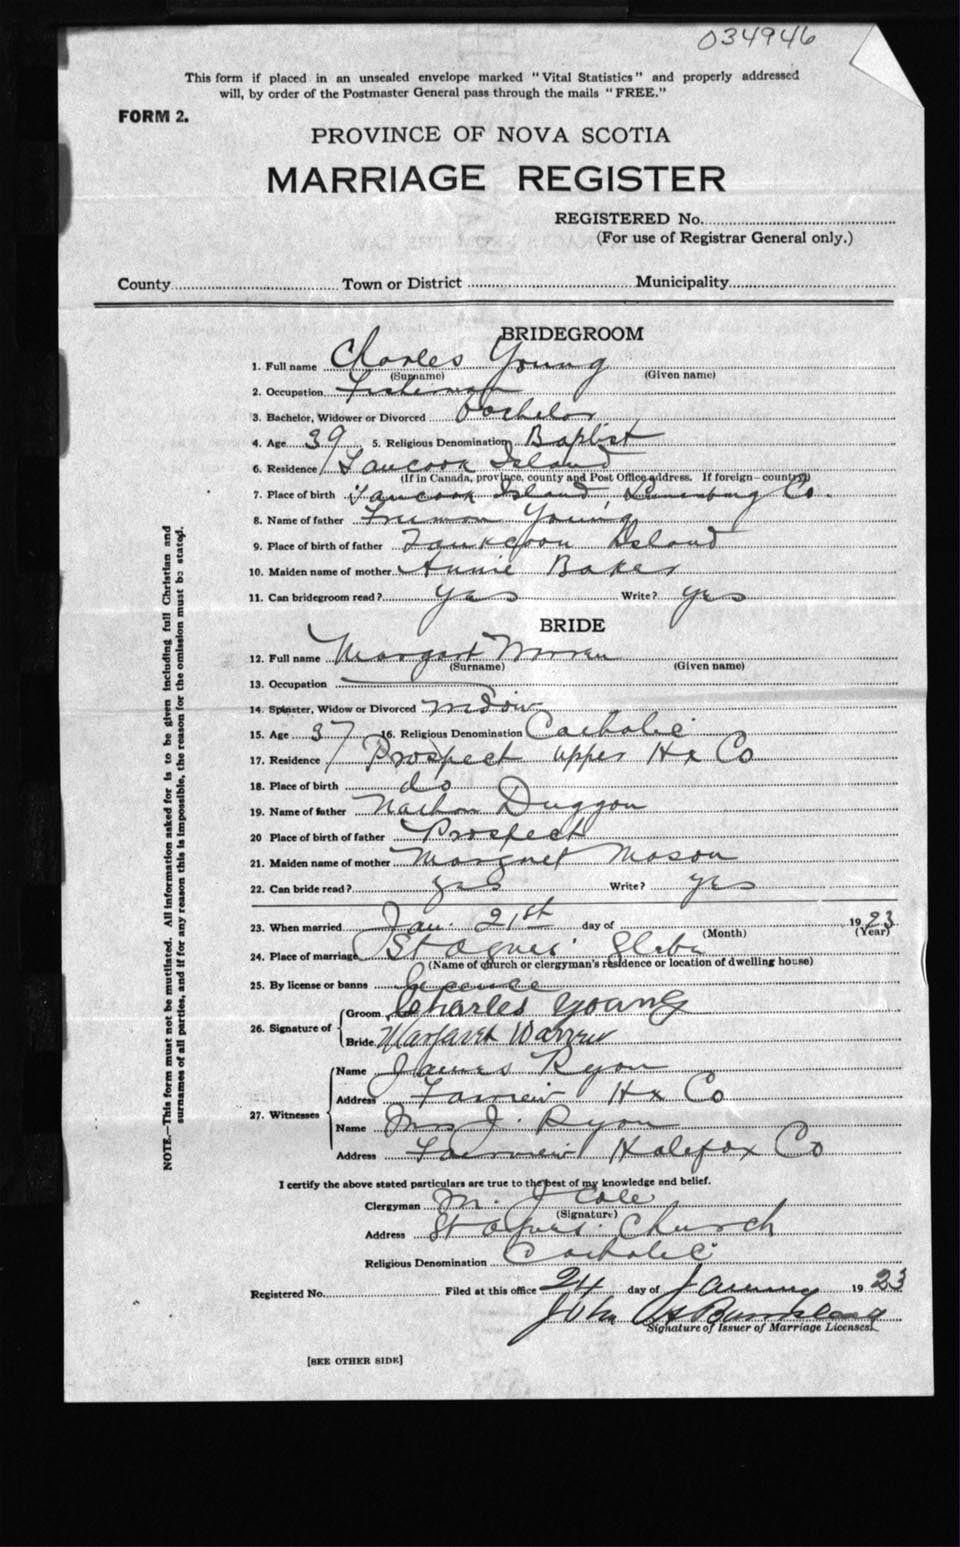 034946
This form if placed in an unsealed envelope marked "Vital Statistics" and properly addressed
will, by order of the Postmaster General pass through the mails "FREE."
FORM 2.
PROVINCE OF NOVA SCOTIA
MARRIAGE REGISTER
REGISTERED No.
(For use of Registrar General only.)
County Town or District Municipality
BRIDEGROOM
1. Full name Charles Young
(Surname) (Given name)
2. Occupation Fisherman
3. Bachelor, Widower or Divorced bachelor
4. Age 39 5. Religious Denomination Baptist
6. Residence Tancook Island
(If in Canada, province, county and Post Office address. If foreign—country)
7. Place of birth Tancook Island, Lunenburg Co.
8. Name of father Freeman Young
9. Place of birth of father Island
10. Maiden name of mother Annie Baker
11. Can bridegroom read? yes Write? yes
BRIDE
12. Full name Margaret Warren
(Surname) (Given name)
13. Occupation
14. Spinster, Widow or Divorced widow
15. Age 37 16. Religious Denomination Catholic
17. Residence Prospect upper Hx Co
18. Place of birth do
19. Name of father Nathan Duggon
20 Place of birth of father Prospect
21. Maiden name of mother Margret Mason
22. Can bride read? yes Write? yes
23. When married Jan. 21st day of 1923
(Month) (Year)
24. Place of marriage St Agnes' Glebe
(Name of church or clergyman's residence or location of dwelling house)
25. By license or banns licence
26. Signature of Groom Charles Young
Bride Margaret Warren
27. Witnesses Name James Ryan
Address Fairview Hx Co
Name Mrs J. Ryan
Address Fairview Halifax Co
I certify the above stated particulars are true to the best of my knowledge and belief.
Clergyman M. J Cole
(Signature)
Address St Agnes. Church
Religious Denomination Catholic
Registered No. Filed at this office 24 day of January 1923
John
Signature of Issuer of Marriage Licenses.
[SEE OTHER SIDE]
NOTE.—This form must not be mutilated. All information asked for is to be given including full Christian and
surnames of all parties, and if for any reason this is impossible, the reason for the omission must be stated.